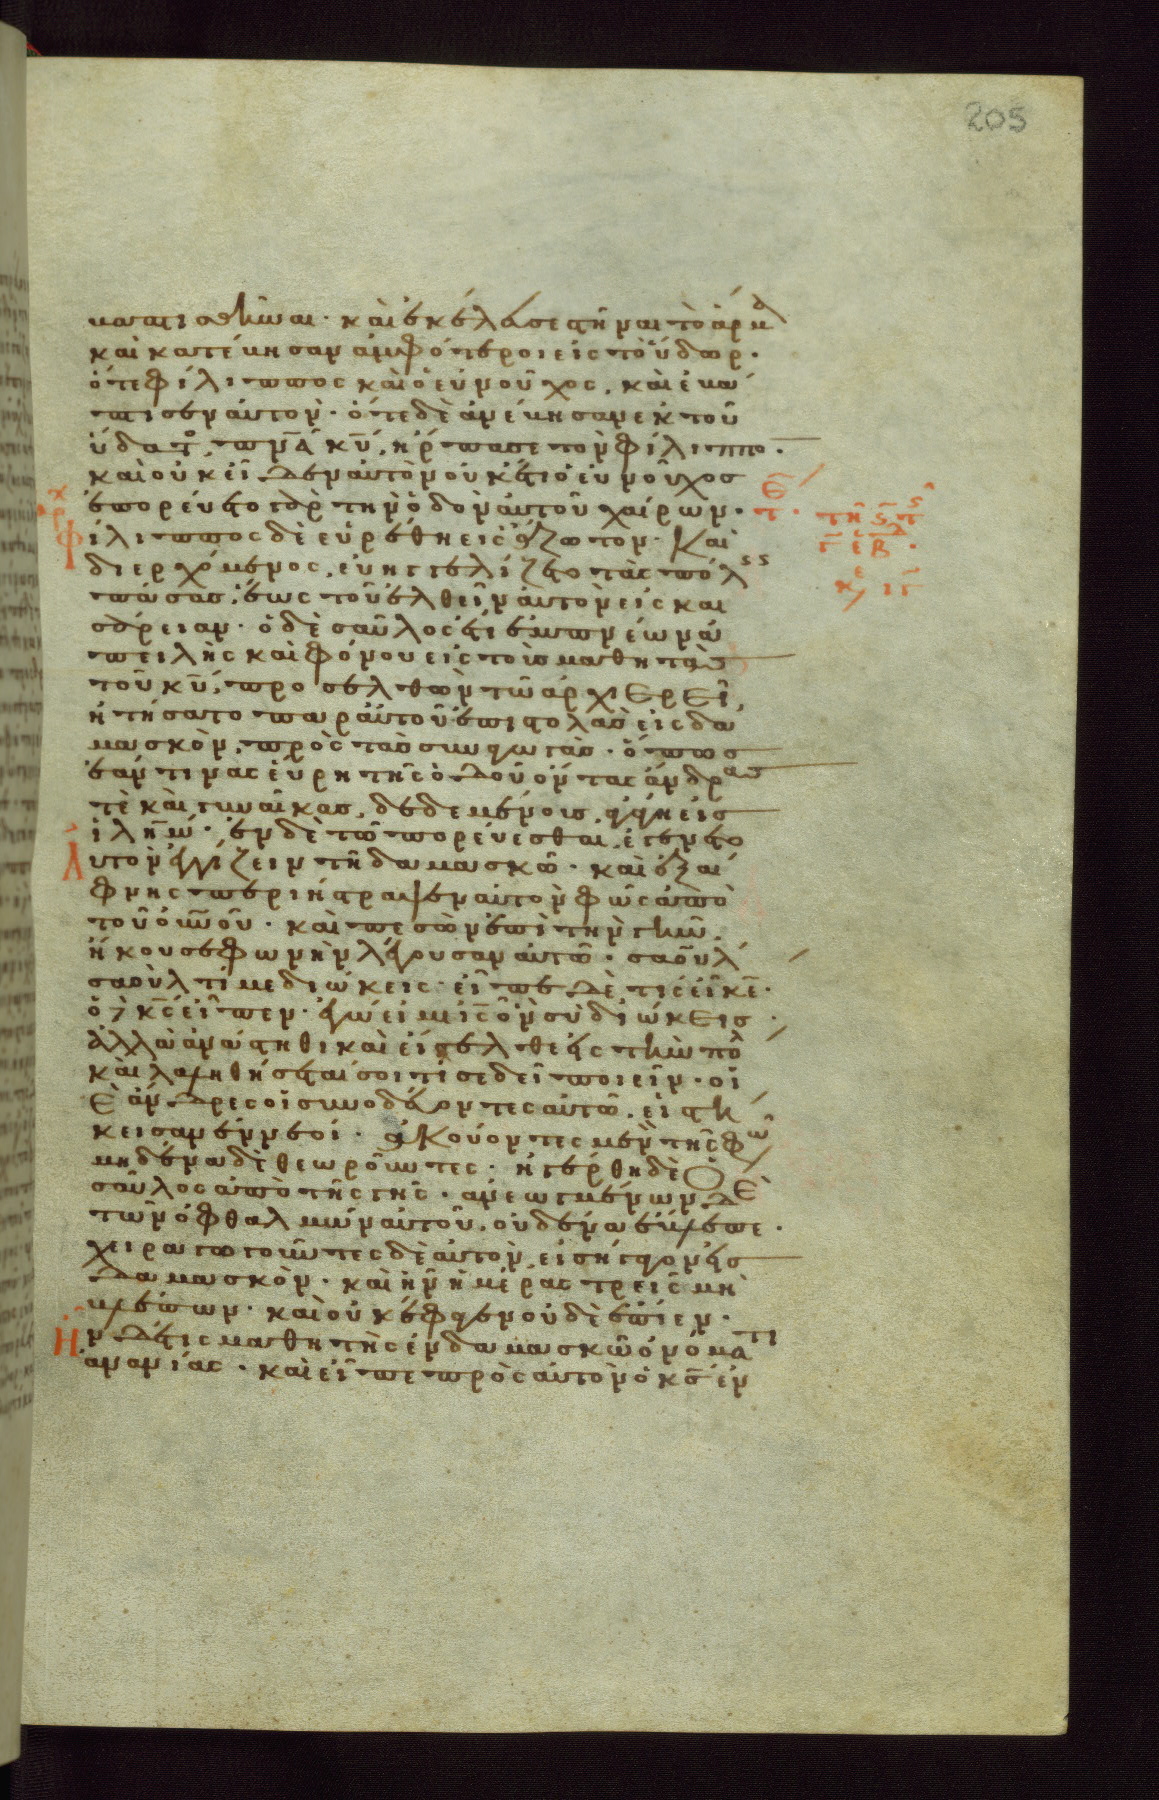 205
βαπτισθῆναι· καὶ ἐκέλευσε στῆναι τὸ ἅρμ
καὶ κατέβησαν ἀμφότεροι εἰς τὸ ὕδωρ·
ὅ τε φίλιππος καὶ ὁ εὐνοῦχος, καὶ ἐβά
πτισεν αὐτόν· ὅτε δὲ ἀνέβησαν ἐκ τοῦ
ὕδατο, πνα κυ, ἥρπασε τὸν φίλιππο
καὶ οὐκ εἶδεν αὐτὸν οὐκέτι ὁ εὐνοῦχος
ἐπορεύετο γὰρ τὴν ὁδὸν αὐτοῦ χαίρων·
Φίλιππος δὲ εὑρέθη εἰς ἄζωτον· Καὶ
διερχόμενος, εὐηγγελίζετο τὰς πόλ
πάσας, ἕως τοῦ ἐλθεῖν αὐτὸν εἰς και
σάρειαν· ὁ δὲ σαῦλος ἔτι ἐμπνέων ἀ
πειλῆς καὶ φόνου εἰς τοὺς μαθητὰς
τοῦ κυ, προσελθὼν τῷ ἀρχιερεῖ,
ἠτήσατο παρ αὐτοῦ ἐπιστολὰς εἰς δα
μασκὸν, πρὸς τὰς συναγωγάς· ὅπως
ἐάν τινας εὕρῃ τῆς ὁδοῦ ὄντας ἄνδρας
τὲ καὶ γυναῖκας, δεδεμένους, ἀγάγῃ εἰς
ἱλημ· ἐν δὲ τῷ πορεύεσθαι, ἐγένετο
Αυτὸν ἐγγίζειν τῇ δαμασκῷ· καὶ ἐξαί
φνης περιήστραψεν αὐτὸν φῶς ἀπὸ
τοῦ οὐνοῦ· καὶ πεσὼν ἐπὶ τὴν γῆν,
ἤκουσε φωνὴν λέγουσαν αὐτῷ· σαοῦλ
σαοὺλ τί με διώκεις· εἶπε δὲ τίς εἶ κε·
ὁ δὲ κς εἶπεν· ἐγώ εἰμι ις ὃν σὺ διώκεις·
ἀλλὰ ἀνάστηθι καὶ εἴσελθε εἰς τὴν πο
καὶ λαληθήσεταί σοι τί σε δεῖ ποιεῖν· οἱ
δὲ ἄνδρες οἱ συνοδεύοντες αὐτῷ, εἱστή
κεισαν ἐννεοί· ἀκούοντες μὲν τῆς φω
μηδένα δὲ θεωροῦντες· ἠγέρθη δὲ ὁ
σαῦλος ἀπὸ τῆς γῆς· ἀνεωγμένων δὲ
τῶν ὀφθαλμῶν αὐτοῦ, οὐδένα ἔβλεπε·
χειραγωγοῦντες δὲ αὐτὸν, εἰσήγαγον εἰς
δαμασκὸν· καὶ ἦν ἡμέρας τρεῖς μὴ
βλέπων· καὶ οὐκ ἔφαγεν οὐδὲ ἔπιεν·
Ην δέ τις μαθητὴς ἐν δαμασκῷ ὀνόματι
ἀνανίας· καὶ εἶπε πρὸς αὐτὸν ὁ κς ἐν